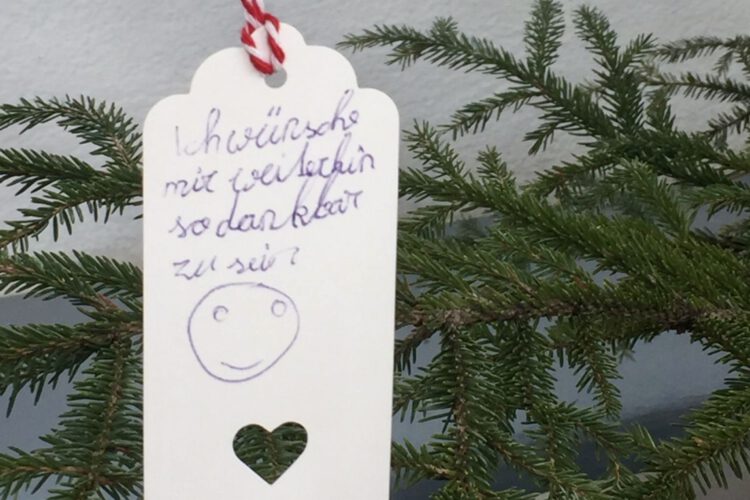 Ich wünsche
mir weiterhin
so dankbar
zu sein